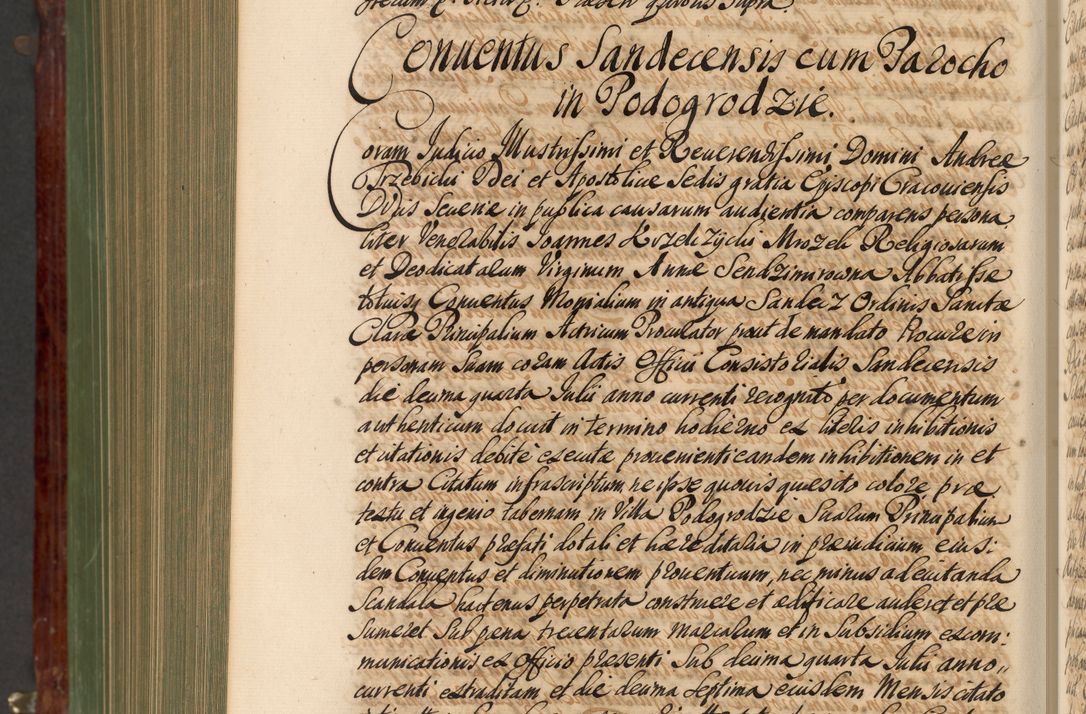 Conuentus Sandecensis cum Parocho
in Podogrodzie.
Coram Judicio Illustrissimi et Reuerendissimi Domini Andreæ
Trzebicki Dei et Apostolicæ Sedis gratia Episcopi Cracouiensis
Ducis Seueriæ in publica causarum audientia comparens persona
liter Venerabilis Joannes Mrozek Religiosarum
et Deodicatarum Virginum Annæ Sendzimirowna Abbatissæ
totiusq Conuentus Monialium in antiqua Sandecz Ordinis Sanctæ
Claræ Principalium Actricum Procurator prout de mandato Procure in
personam Suam coram Actis Officii Consistorialis Sandecensis
die decima quarta Julii anno currenti recognito per documentum
authenticum docuit in termino hodierno ex literis inhibitionis
et citationis debite executæ proueniente eandem inhibitionem in et
contra Citatum infrascriptum ne ipse quouis quæsito colore præ
textu et ingenio tabernam in Villa Podogrodzie Suarum Principalium
et Conuentus præfati dotali et hæreditaria in præiudicium eius:
dem Conuentus et diminutionem prouentuum, nec minus ad euitanda
Scandala hactenus perpetrata construere et ædificare auderet et præ
sumeret Sub pæna trecentarum Marcarum et in Subsidium excom:
municationis ex Officio præsenti Sub decima quarta Julii anno
currenti extraditam et die decima Septima eiusdem Mensis citato